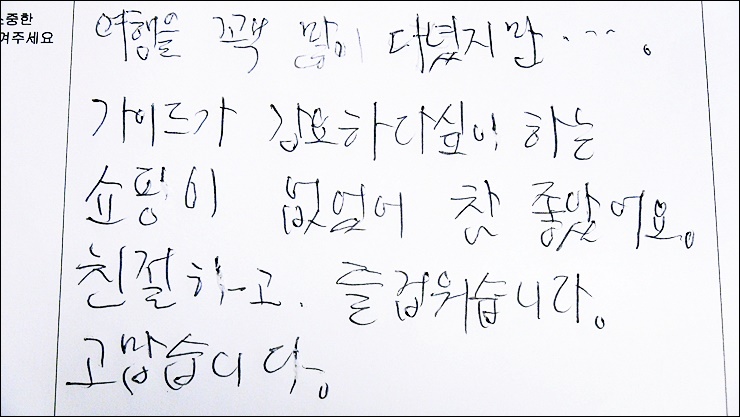 소중한
겨주세요
여행을 꽤 많이 다녔지만....
가이드가 강요하다싶이 하는
쇼핑이 없었어 참 좋았어요.
친절하고. 즐겁워습니다.
고맙습니다.